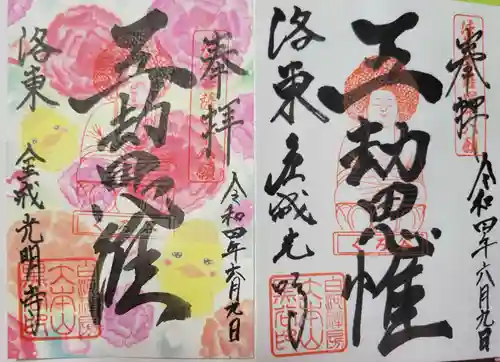 奉拝
令和四年六月九日
五劫思惟
洛東
金戒光明寺
奉拝
令和四年六月九日
五劫思惟
洛東
金戒光明寺
大本山